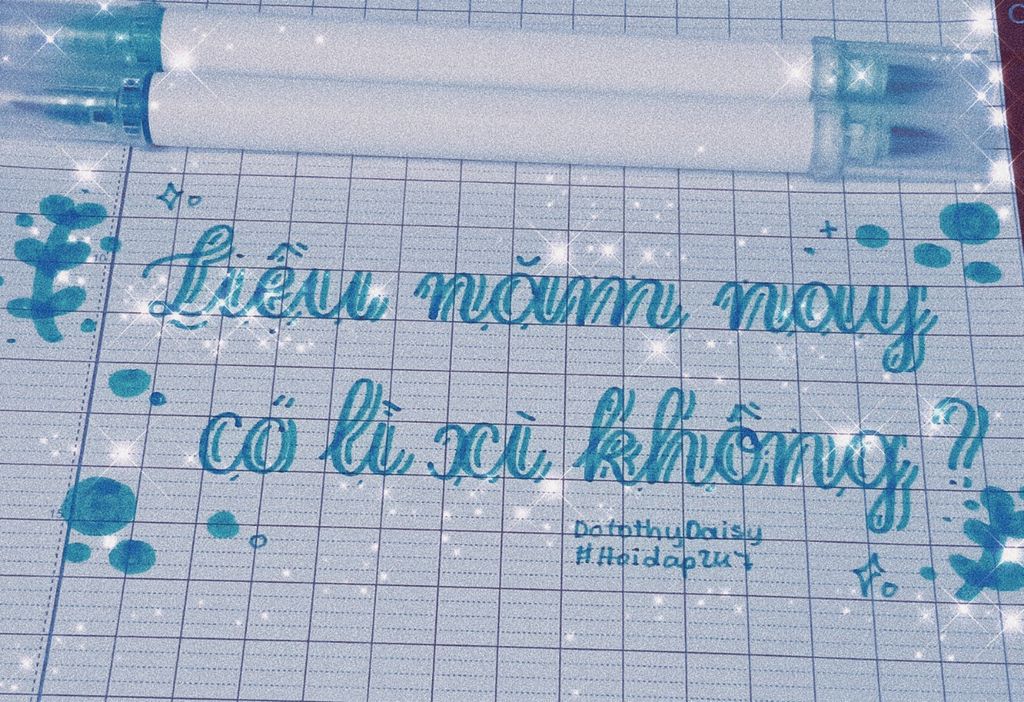 Liệu năm nay
có lì xì không?
DotothyDaisy
#Hoidap247